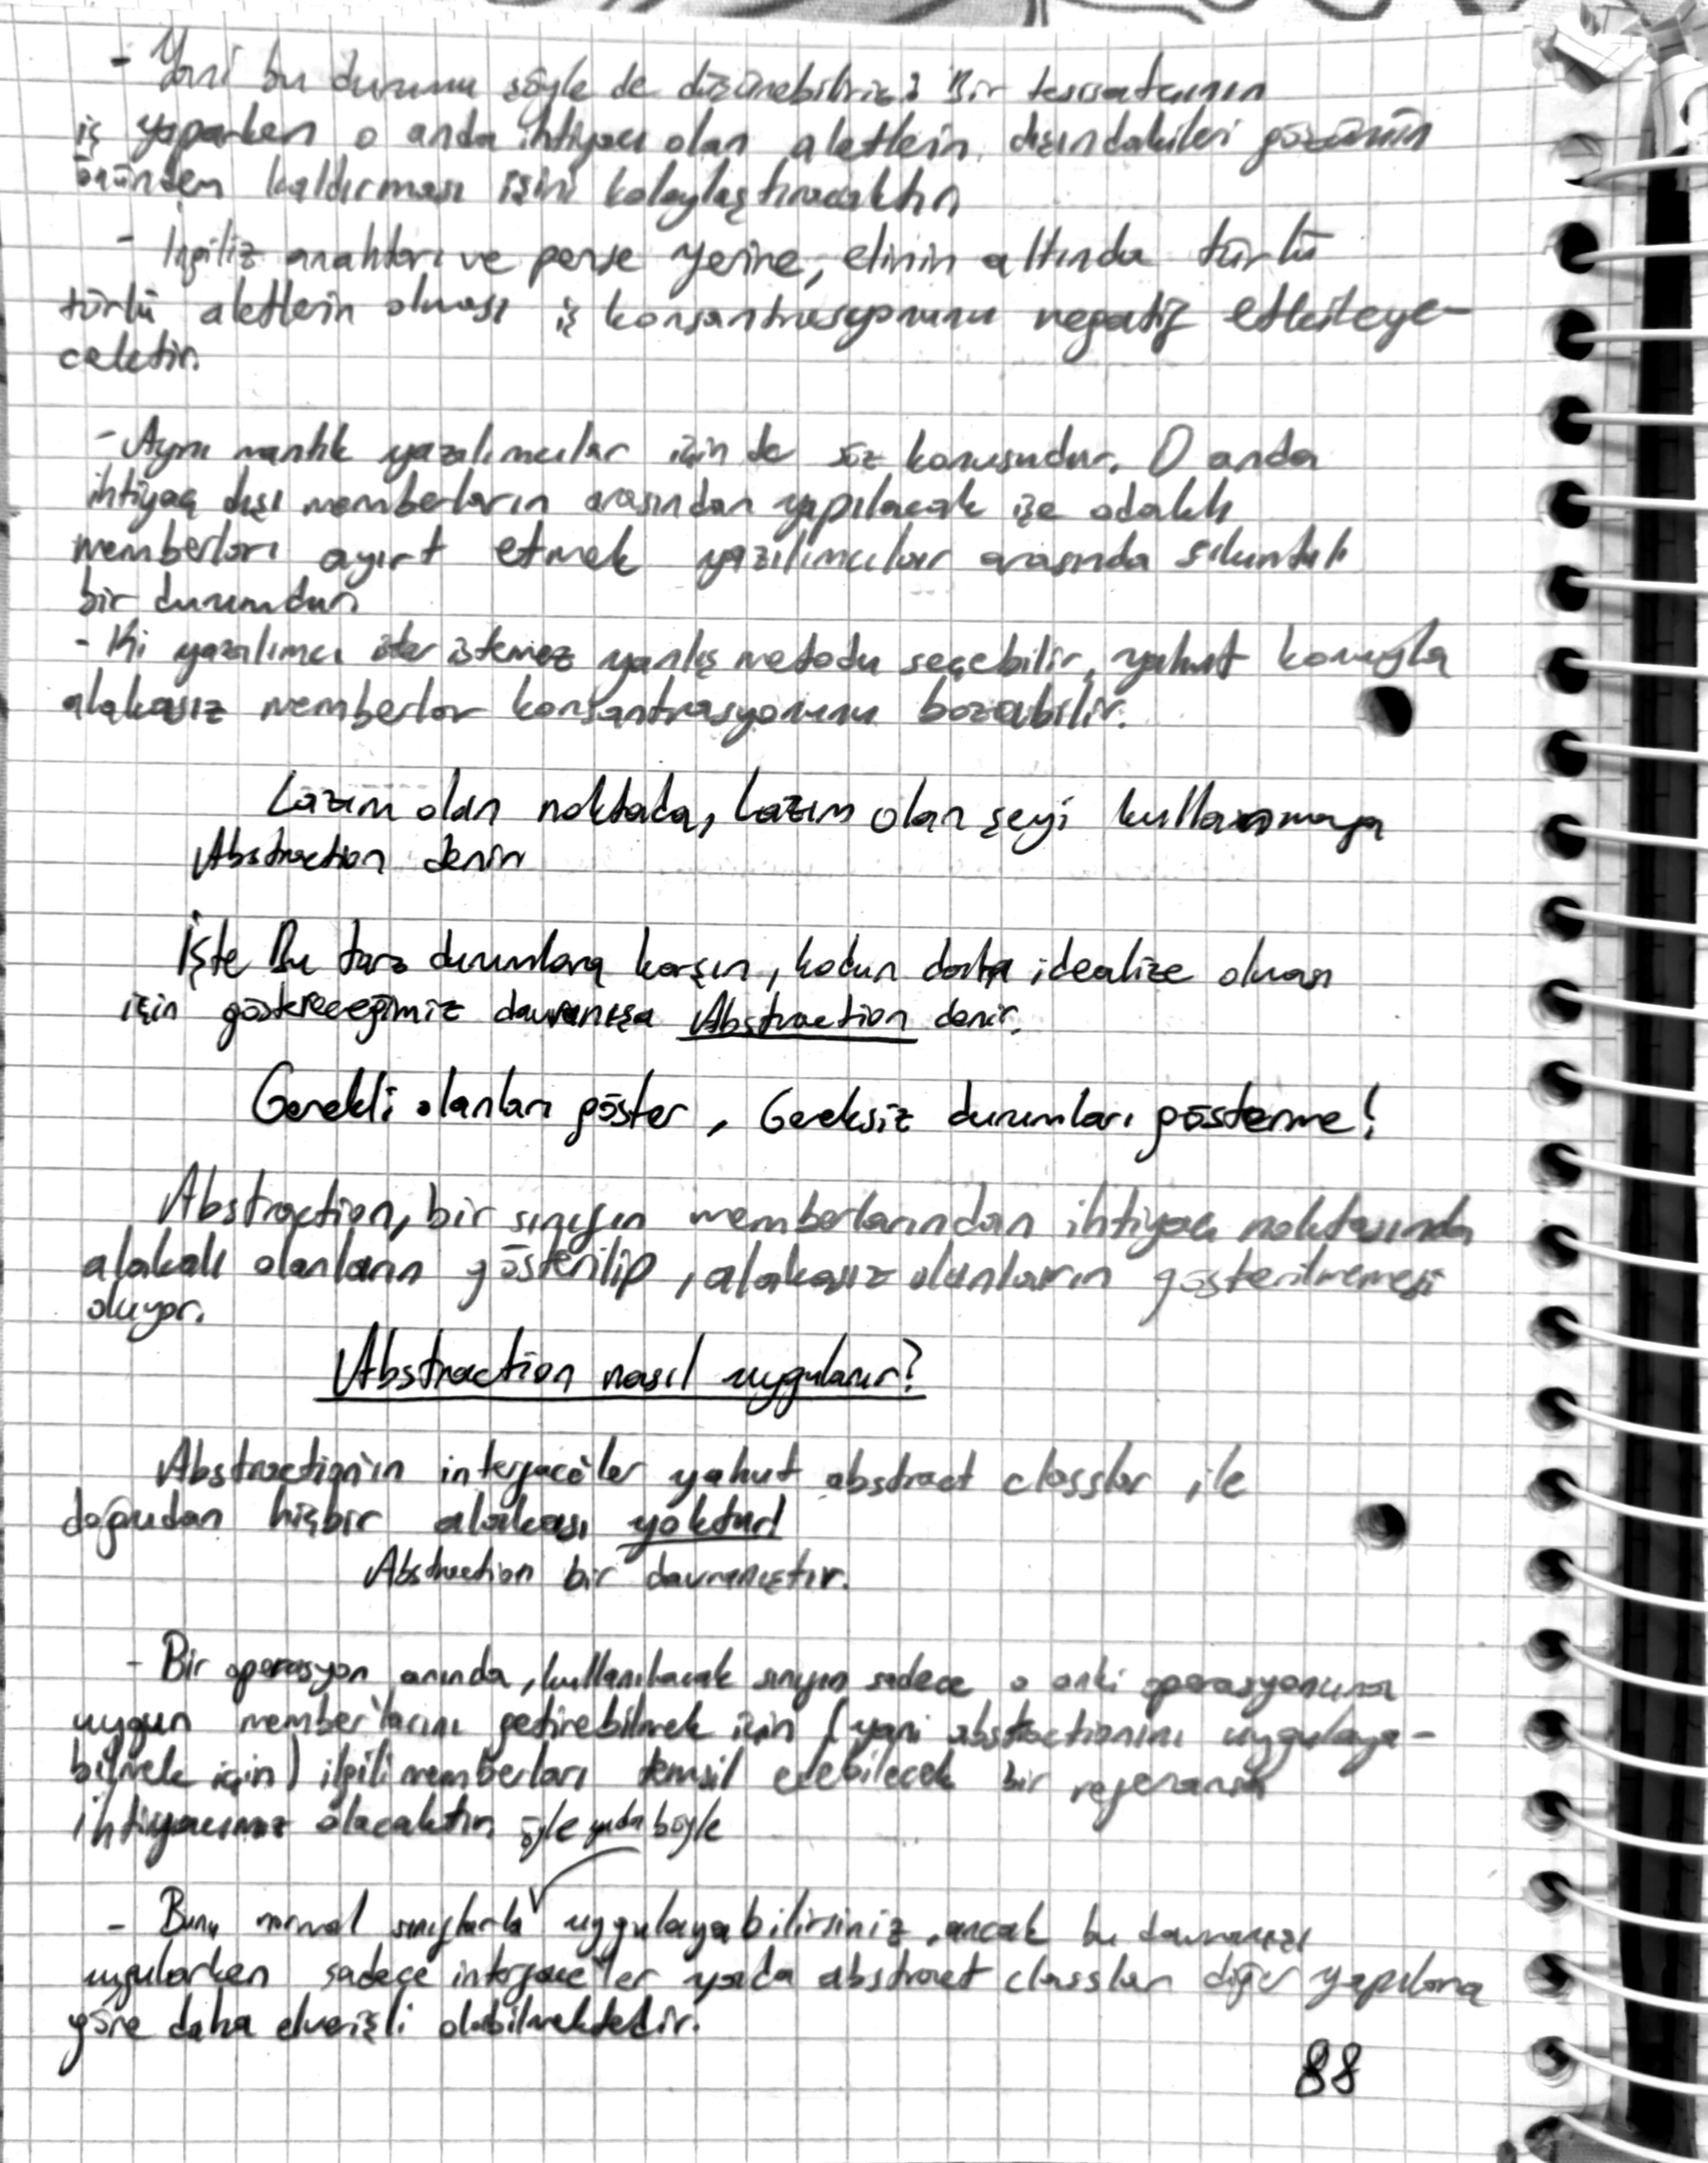 - Yani bu durumu şöyle de düşünebiliriz: Bir tesisatçının
iş yaparken o anda ihtiyacı olan aletlerin dışındakileri gözünün
önünden kaldırması işini kolaylaştıracaktır.
- İngiliz anahtarı ve pense yerine, elinin altında türlü
türlü aletlerin olması iş konsantrasyonunu negatif etkileye-
cektir.
- Aynı mantık yazılımcılar için de söz konusudur. O anda
ihtiyaç dışı memberların arasından yapılacak işe odaklı
memberları ayırt etmek yazılımcılar arasında sıkıntılı
bir durumdur.
- Ki yazılımcı ister istemez yanlış metodu seçebilir, yahut konuyla
alakasız memberlar konsantrasyonunu bozabilir.
Lazım olan noktada, lazım olan şeyi kullanmaya
Abstraction denir
İşte Bu tarz durumlara karşın, kodun daha idealize olması
için göstereceğimiz davranışa Abstraction denir.
Gerekli olanları göster, Gereksiz durumları gösterme!
Abstraction, bir sınıfın memberlarından ihtiyaç noktasında
alakalı olanların gösterilip, alakasız olanların gösterilmemesi
oluyor.
Abstraction nasıl uygulanır?
Abstraction'ın interface'ler yahut abstract classlar ile
doğrudan hiçbir alakası yoktur!
Abstraction bir davranıştır.
- Bir operasyon anında, kullanılacak sınıfın sadece o anki operasyonuna
uygun member'larını getirebilmek için (yani abstractionını uygulaya-
bilmek için) ilgili memberları temsil edebilecek bir referansa
ihtiyacımız olacaktır.
öyle yada böyle
- Bunu normal sınıflarla uygulayabilirsiniz, ancak bu davranışı
uygularken sadece interface'ler yada abstract classlar diğer yapılara
göre daha elverişli olabilmektedir.
88